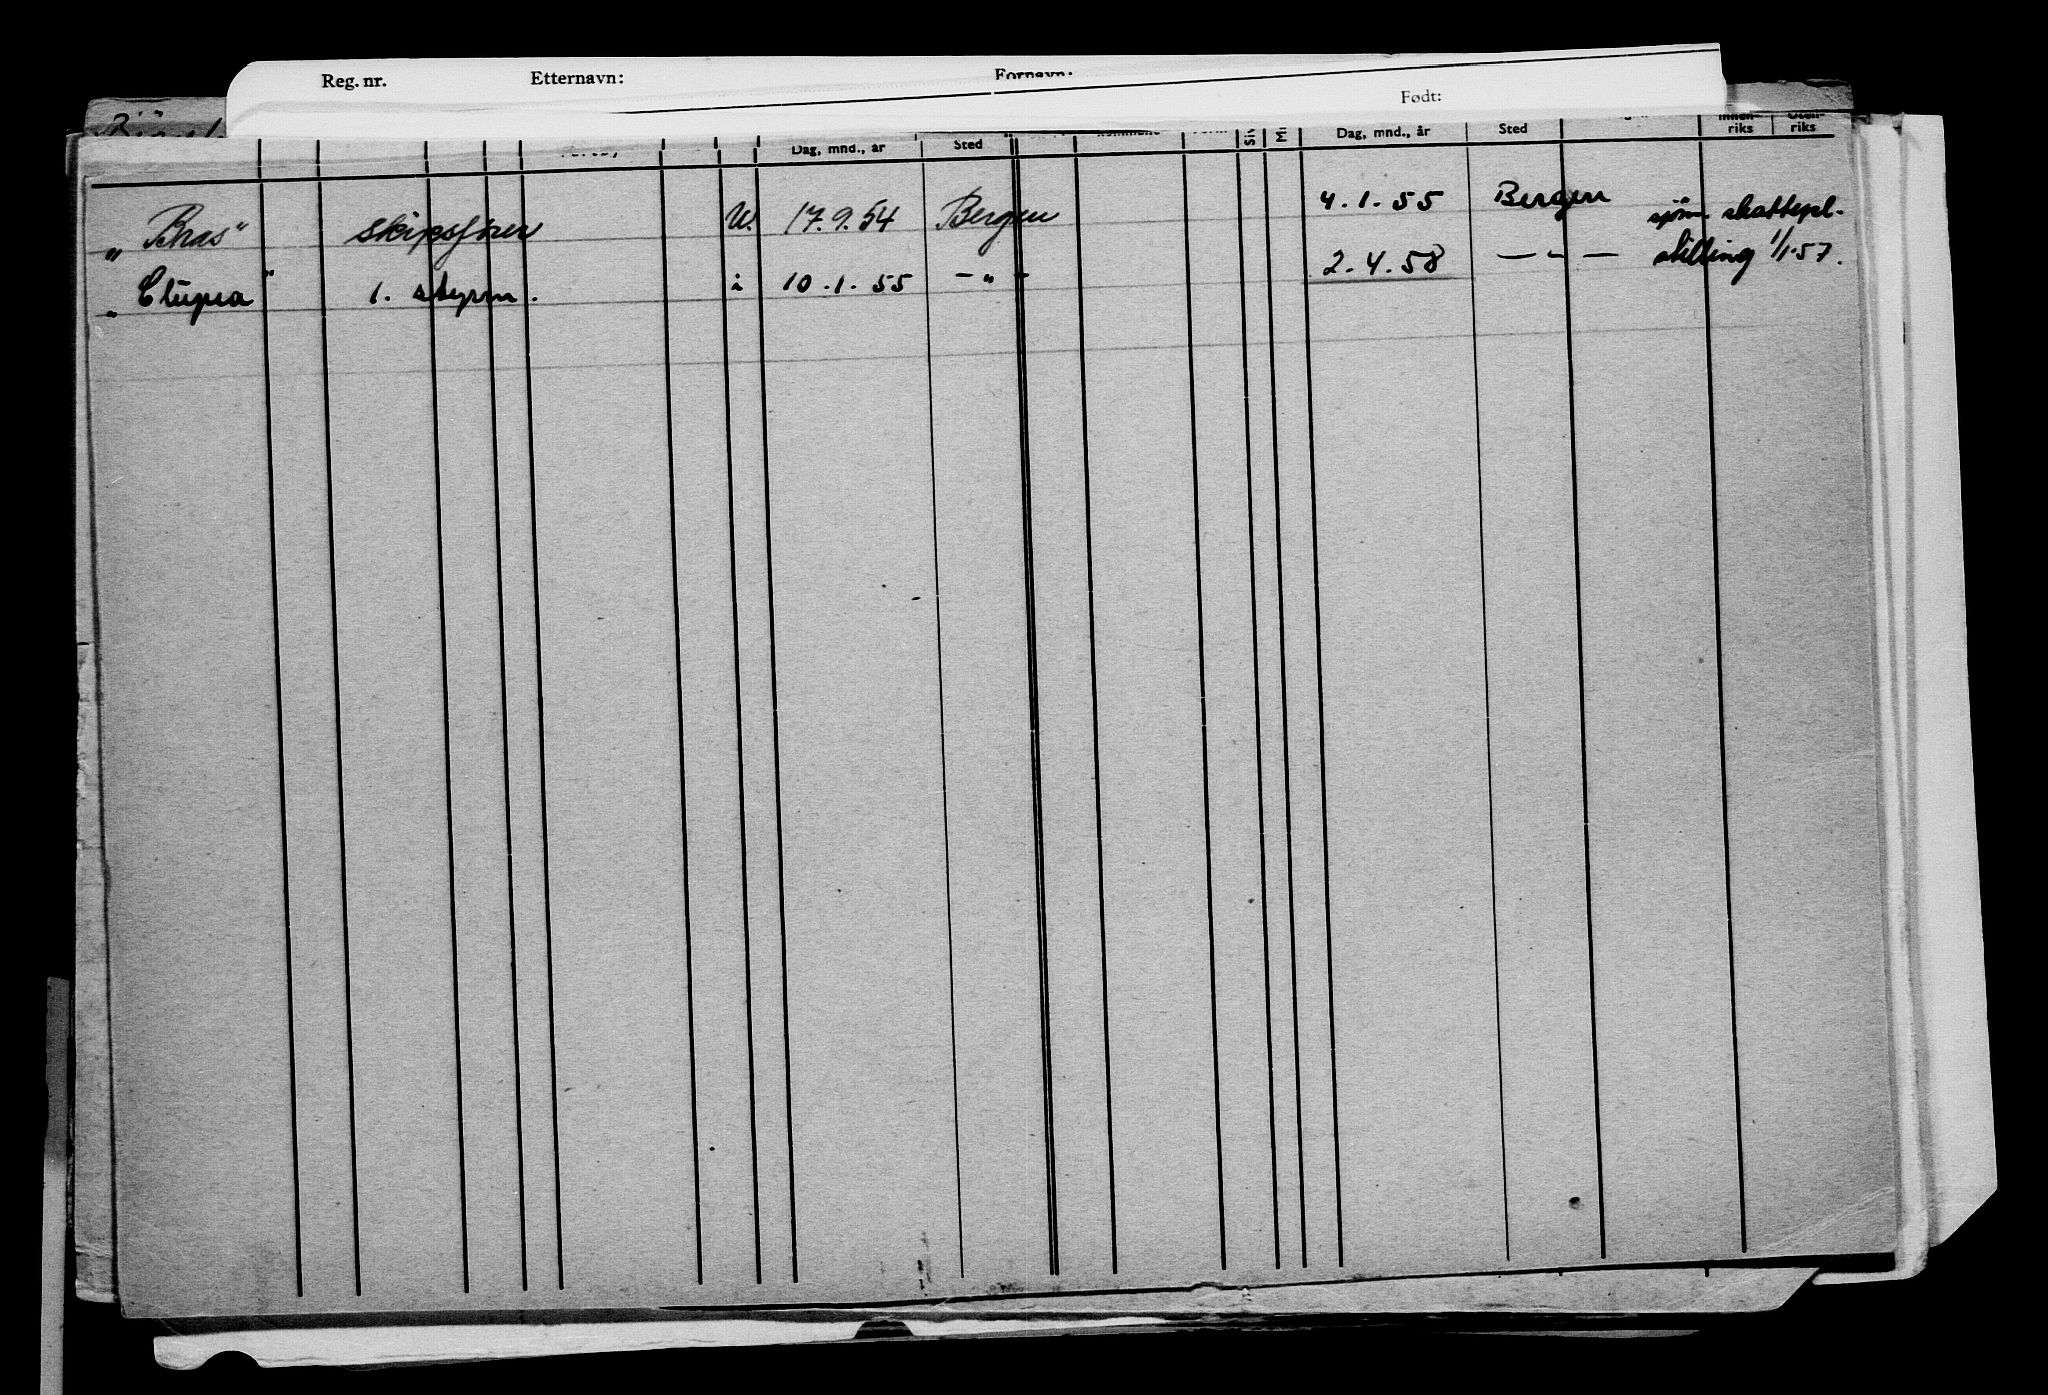 Reg. nr. Etternavn: Fornavn:
Født:
Dag, mnd., år Sted Dag, mnd., år Sted riks riks
skipsfører W. 17.9.54 Bergen 4.1.55 Bergen sjøm. skattepl.
"Clupea" 1. styrm. i 10.1.55 — " — 2.4.58 — " — stilling 1/1-57.